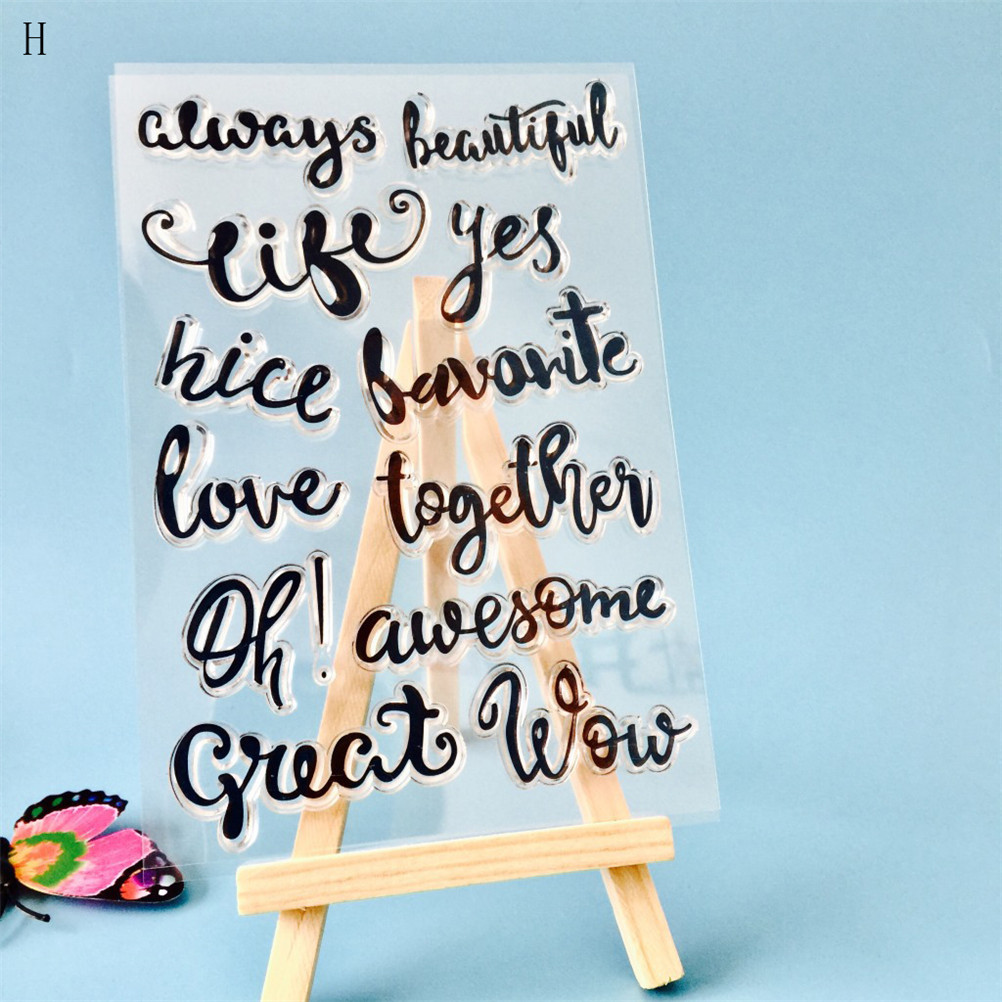 H
always beautiful
life yes
nice favorite
love together
Oh! awesome
Great Wow